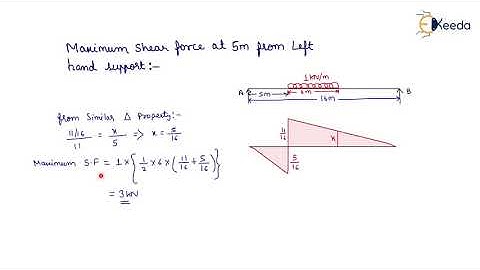 Ekeeda
Maximum shear force at 5m from Left
hand support:-
1 kN/m
A
5m
6m
B
16m
from Similar Δ Property:-
11/16 / 11 = x / 5 => x = 5/16
Maximum S.F = 1 x { 1/2 x 6 x ( 11/16 + 5/16 ) }
= 3kN
11/16
x
5/16